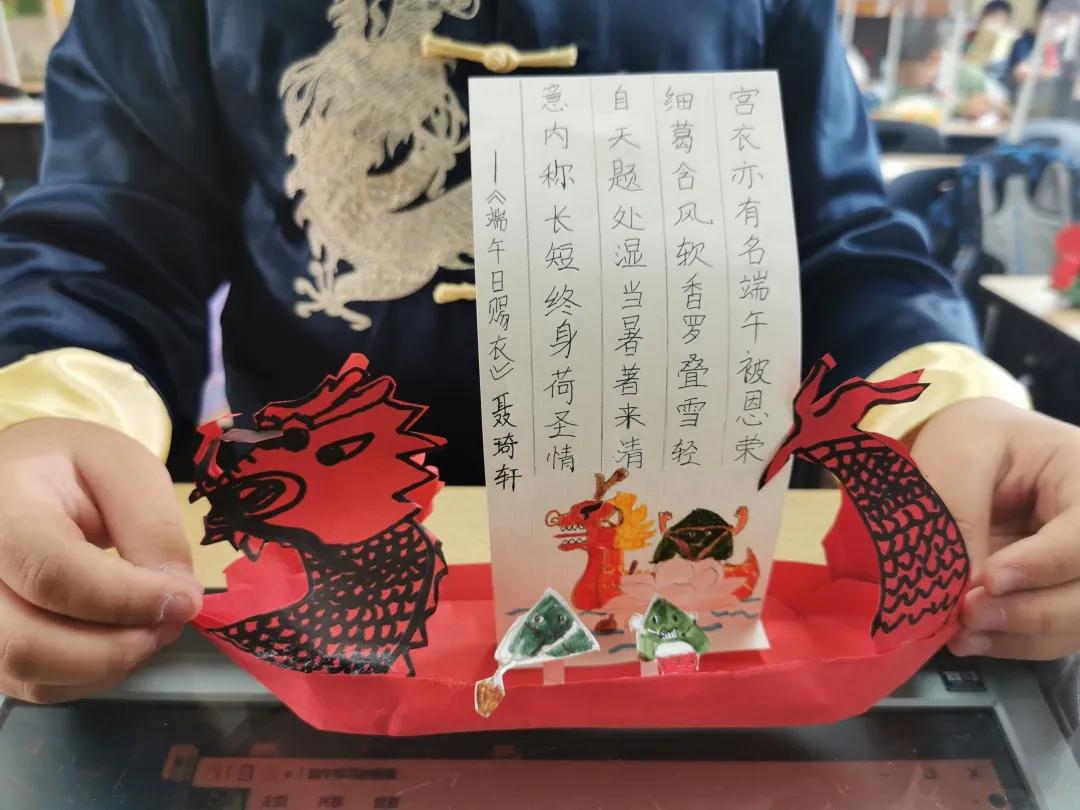 宫衣亦有名端午被恩荣
细葛含风软香罗叠雪轻
自天题处湿当暑著来清
意内称长短终身荷圣情
——《端午日赐衣》聂琦轩